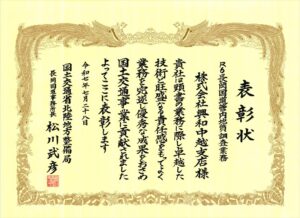 表彰状
R6長岡国道管内地質調査業務
株式会社興和中越支店様
貴社は頭書の業務に際し卓越した
技術と旺盛なる責任感をもってよく
業務を完遂し優秀な成果をおさめ
国土交通事業に貢献されました
よってここに表彰します
令和七年七月二十八日
国土交通省北陸地方整備局
長岡国道事務所長 松川武彦